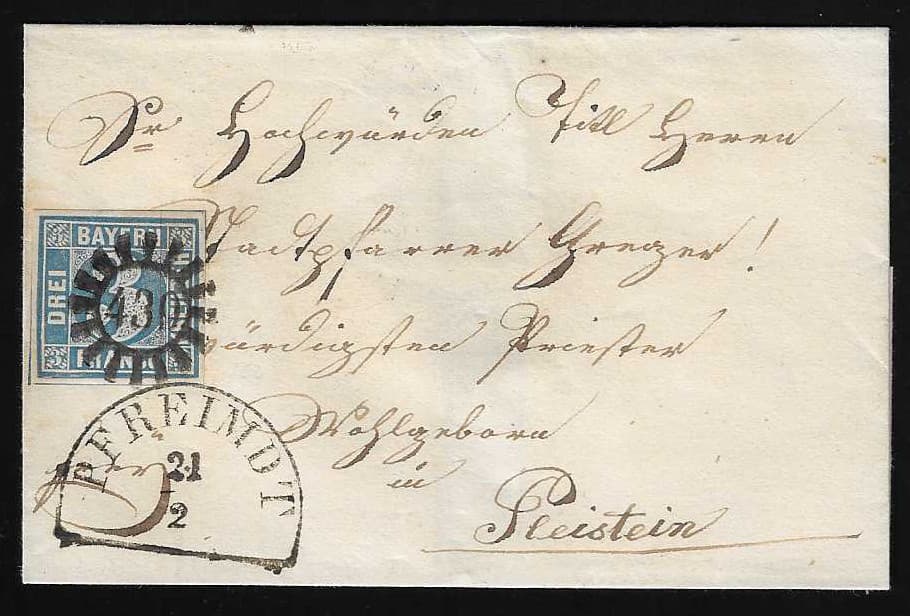 Sr Hochwürden Titl Herrn
Stadtpfarrer Greger!
würdigsten Priester
Wohlgeborn
in
Pleistein
BAYERN
DREI
3
430
PFREIMDT
21
2